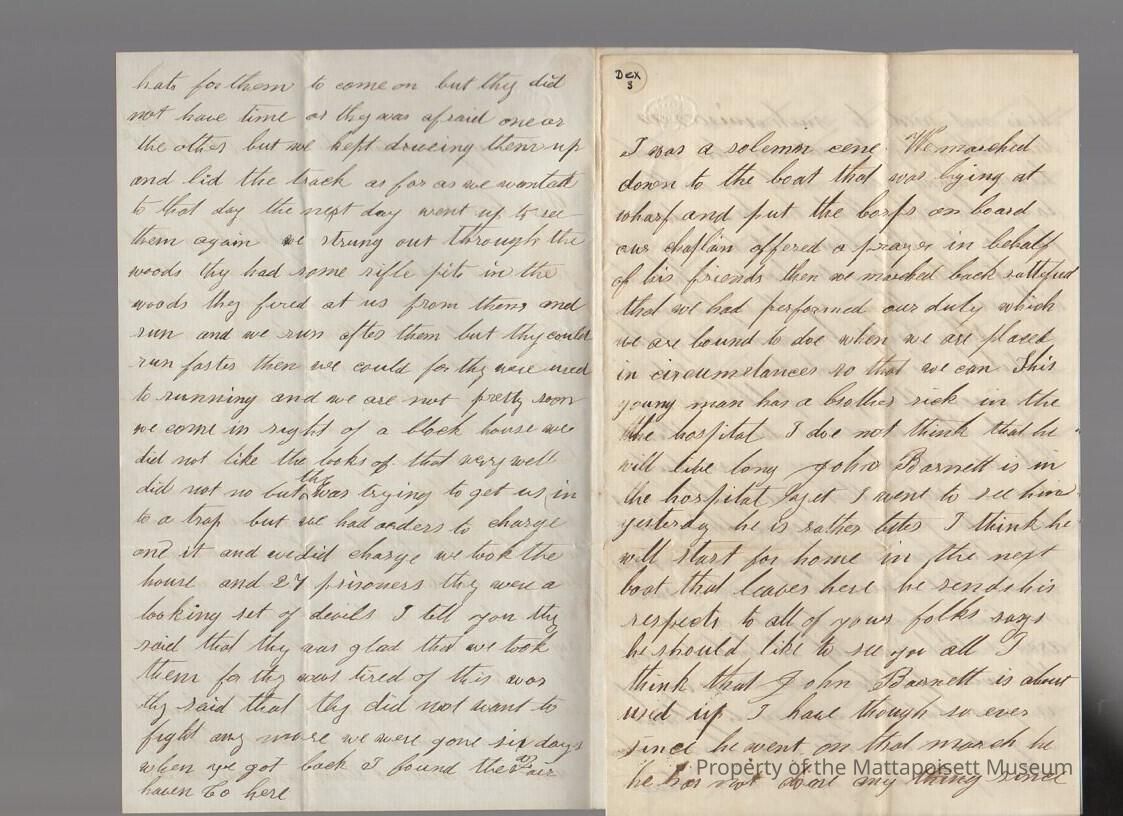 hats for them to come on but thy did
not have time or thy was afraid one or
the other but we kept driveing them up
and lid the track as far as we wanted
to that day the next day went up to see
them again we strung out through the
woods thy had some rifle pits in the
woods they fired at us from them and
run and we run after them but thy could
run faster then we could for thy ware used
to running and we are not pretty soon
we come in sight of a block house we
did not like the looks of that very well
did not no but thy was trying to get us in
to a trap but we had orders to charge
one it and we did charge we took the
house and 27 prisoners they were a
looking set of devils I tell you thy
said that thy was glad that we took
them for thy was tired of this war
thy said that thy did not want to
fight any more we were gone six days
when we got back I found the Fair
haven Co here
Dex
3
I was a solemn cene We marched
down to the boat that was lying at
wharf and put the corps on board
our chaplin offered a prayer in behalf
of his friends then we marched back sattisfied
that we had performed our duty which
we are bound to doe when we are placed
in circumstances so that we can This
young man has a brother sick in the
the hospital I doe not think that he
will live long John Barnett is in
the hospital yet I went to see him
yesterday he is rather better I think he
will start for home in the next
boat that leaves here he sends his
respects to all of your folks says
he should like to see you all I
think that John Barnett is about
used up I have though so ever
since he went on that march he
he has not done any thing since
Property of the Mattapoisett Museum